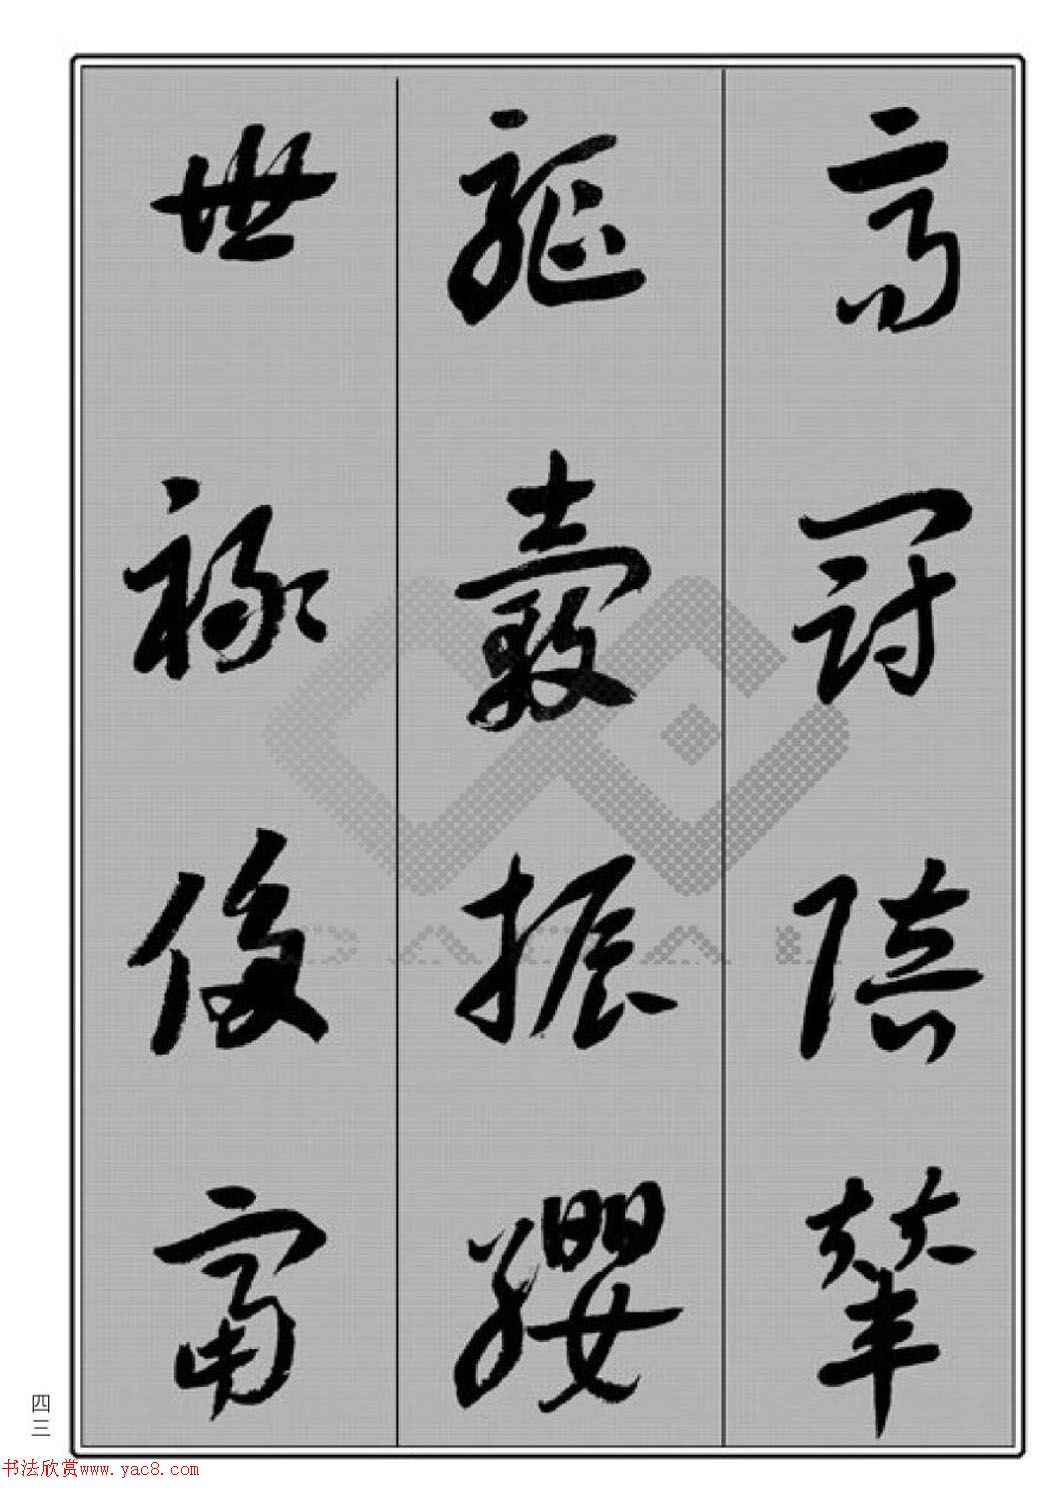 高冠陪輦
驅轂振纓
世祿侈富
四三
书法欣赏www.yac8.com